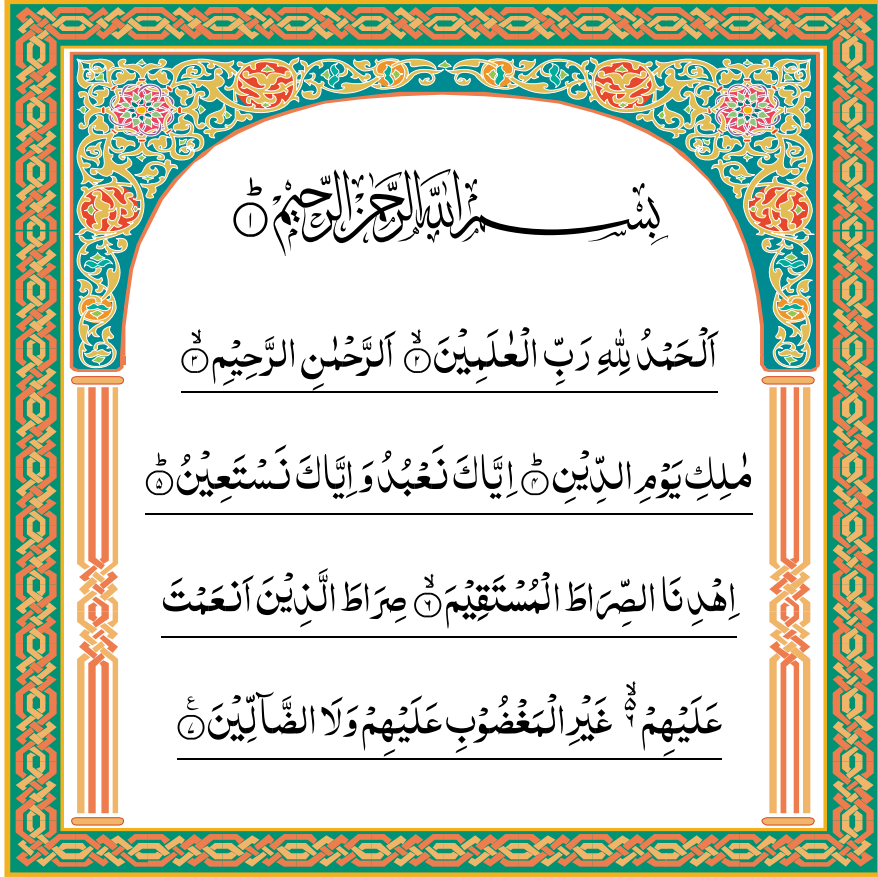 بِسْــــمِ اللهِ الرَّحْمٰنِ الرَّحِيْمِ ؕ‏﴿۱﴾
اَلْحَمْدُ لِلّٰهِ رَبِّ الْعٰلَمِيْنَۙ‏﴿۲﴾ اَلرَّحْمٰنِ الرَّحِيْمِۙ‏﴿۳﴾
مٰلِكِ يَوْمِ الدِّيْنِؕ‏﴿۴﴾ اِيَّاكَ نَعْبُدُ وَ اِيَّاكَ نَسْتَعِيْنُؕ‏﴿۵﴾
اِهْدِنَا الصِّرَاطَ الْمُسْتَقِيْمَۙ‏﴿۶﴾ صِرَاطَ الَّذِيْنَ اَنْعَمْتَ
عَلَيْهِمْ ۙ۬ۦ غَيْرِ الْمَغْضُوْبِ عَلَيْهِمْ وَلَا الضَّآلِّيْنَ‏﴿۷﴾ ع